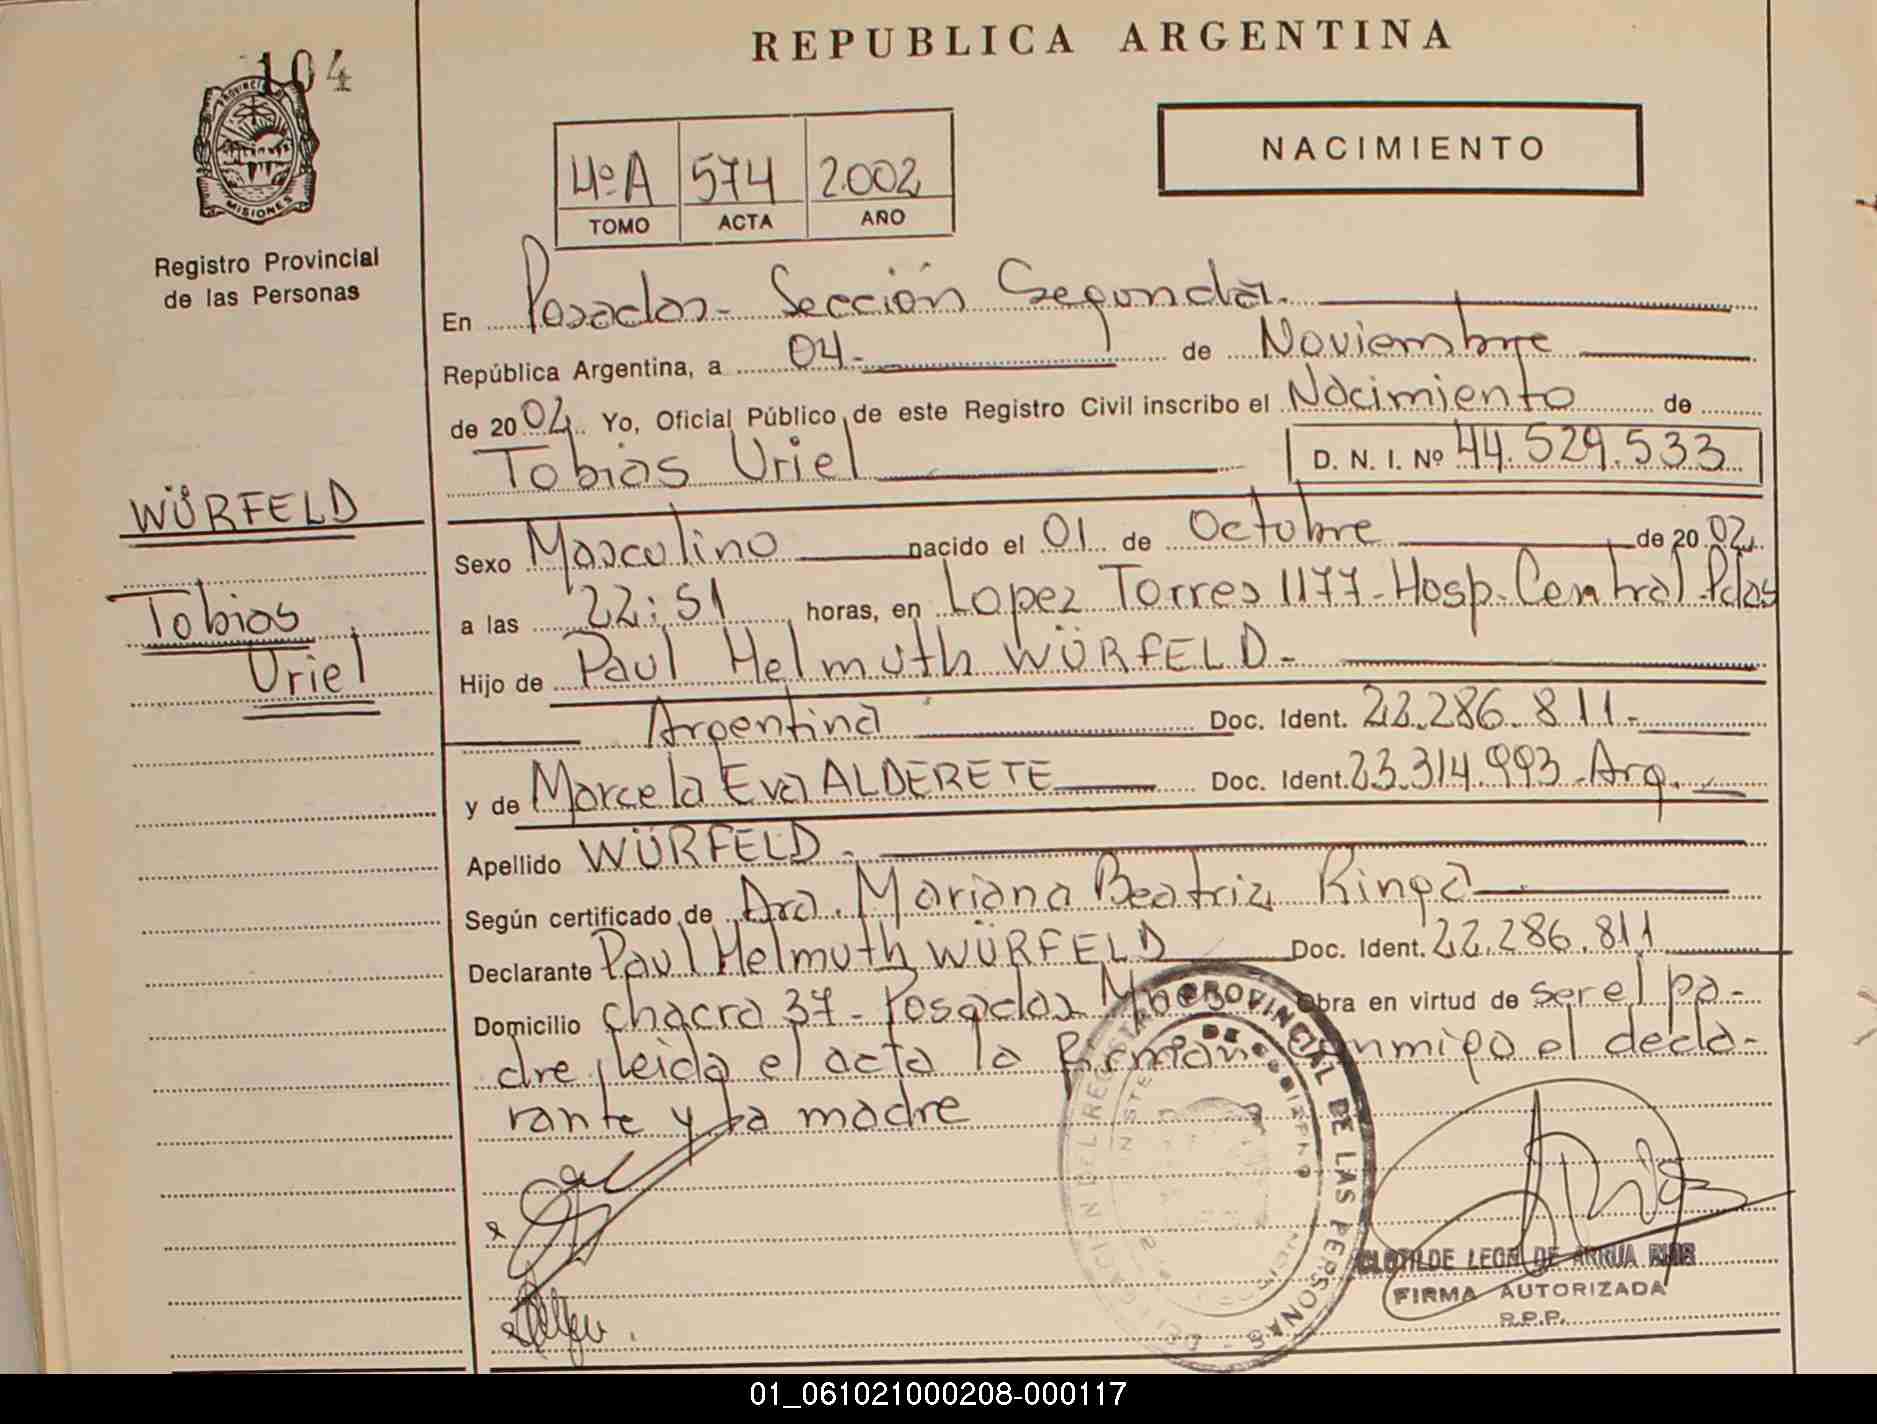 104
REPUBLICA ARGENTINA
PROVINCIA DE
MISIONES
Registro Provincial
de las Personas
4ºA 574 2.002
TOMO ACTA AÑO
NACIMIENTO
En Posadas- Sección Segunda.
República Argentina, a 04- de Noviembre
de 2002. Yo, Oficial Público de este Registro Civil inscribo el Nacimiento de
Tobias Uriel D. N. I. Nº 44.529.533
WÜRFELD
Tobias
Uriel
Sexo Masculino nacido el 01 de Octubre de 2002
a las 22:51 horas, en Lopez Torres 1177-Hosp. Central Pdas
Hijo de Paul Helmuth WÜRFELD-
Argentina Doc. Ident. 22.286.811-
y de Marcela Eva ALDERETE Doc. Ident. 23.314.993-Arg.
Apellido WÜRFELD-
Según certificado de Dra. Mariana Beatriz Ringa
Declarante Paul Helmuth WÜRFELD Doc. Ident. 22.286.811
Domicilio chacra 37- Posadas Mnes Obra en virtud de ser el pa-
dre, leida el acta la firman conmigo el decla-
rante y la madre
PROVINCIAL DE LAS PERSONAS
CLOTILDE LEON DE ARRUA
FIRMA AUTORIZADA
R.P.P.
01_061021000208-000117